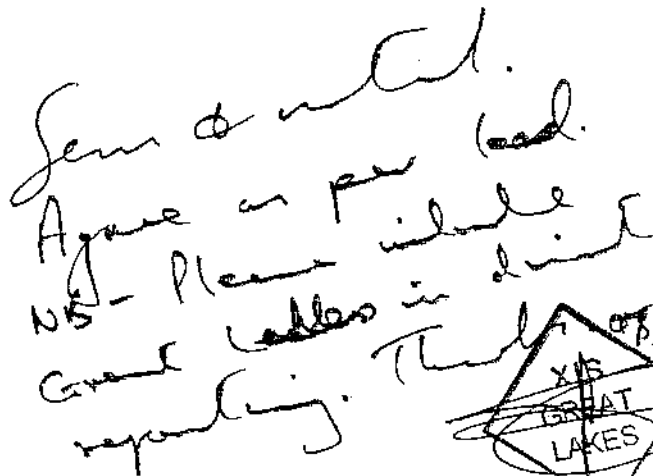 Seen & noted.
Agree as per lead.
NB- Please include
Great Lakes in direct
reporting. Thanks
X15
GREAT
LAKES